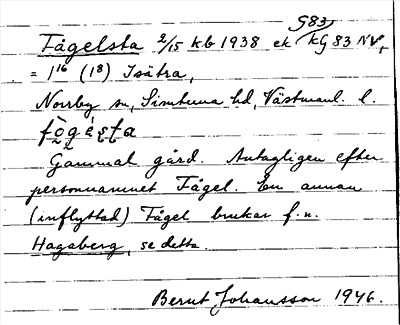 G83
Fågelsta 2/15 kb 1938 ek KG 83 NV,
= 1¹⁶ (1⁸) Isätra,
Norrby sn, Simtuna hd, Västmanl. l.
Gammal gård. Antagligen efter
personnamnet Fågel. En annan
(inflyttad) Fågel brukar f.n.
Hagaberg, se detta.
Bernt Johansson 1946.